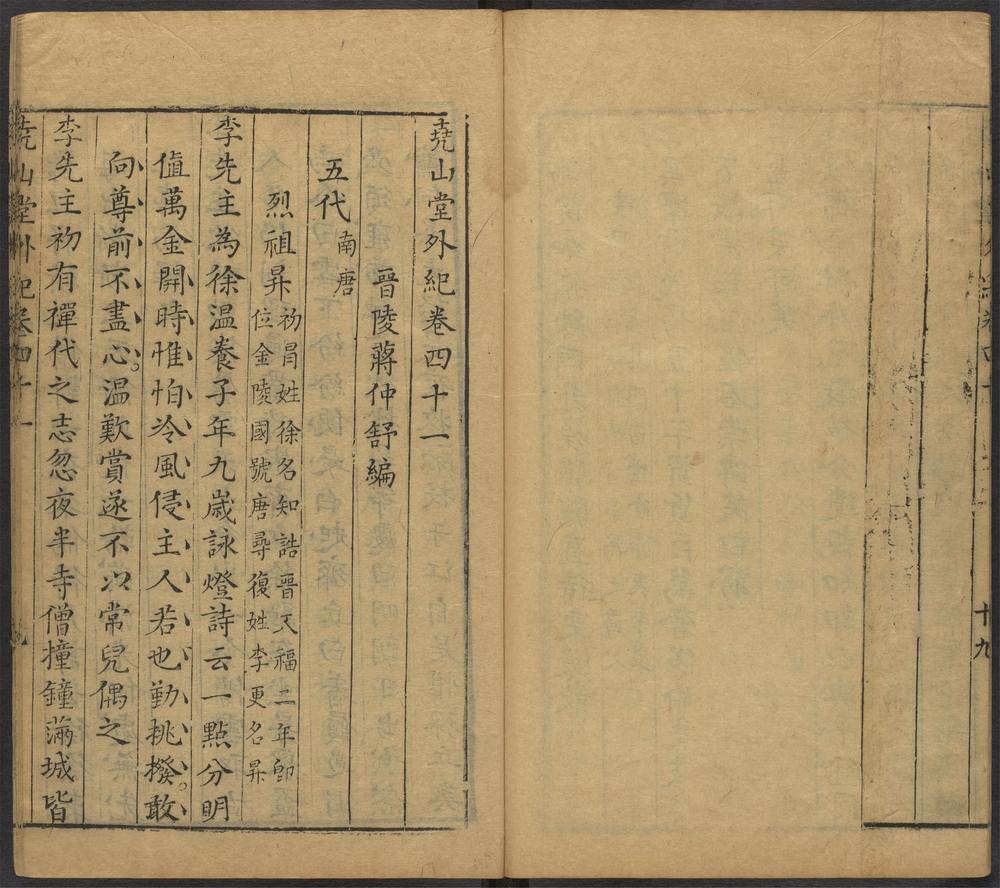 堯山堂外紀卷四十一
晉陵蔣仲舒編
五代南唐
烈祖昪初冐姓徐名知誥晉天福二年卽
位金陵國號唐尋復姓李更名昪
李先主為徐溫養子年九歲詠燈詩云一點分明
值萬金開時惟怕冷風侵主人若也勤挑撥敢
向尊前不盡心溫歎賞遂不以常兒偶之
李先主初有禪代之志忽夜半寺僧撞鐘滿城皆
堯山堂外紀卷四十一
十九